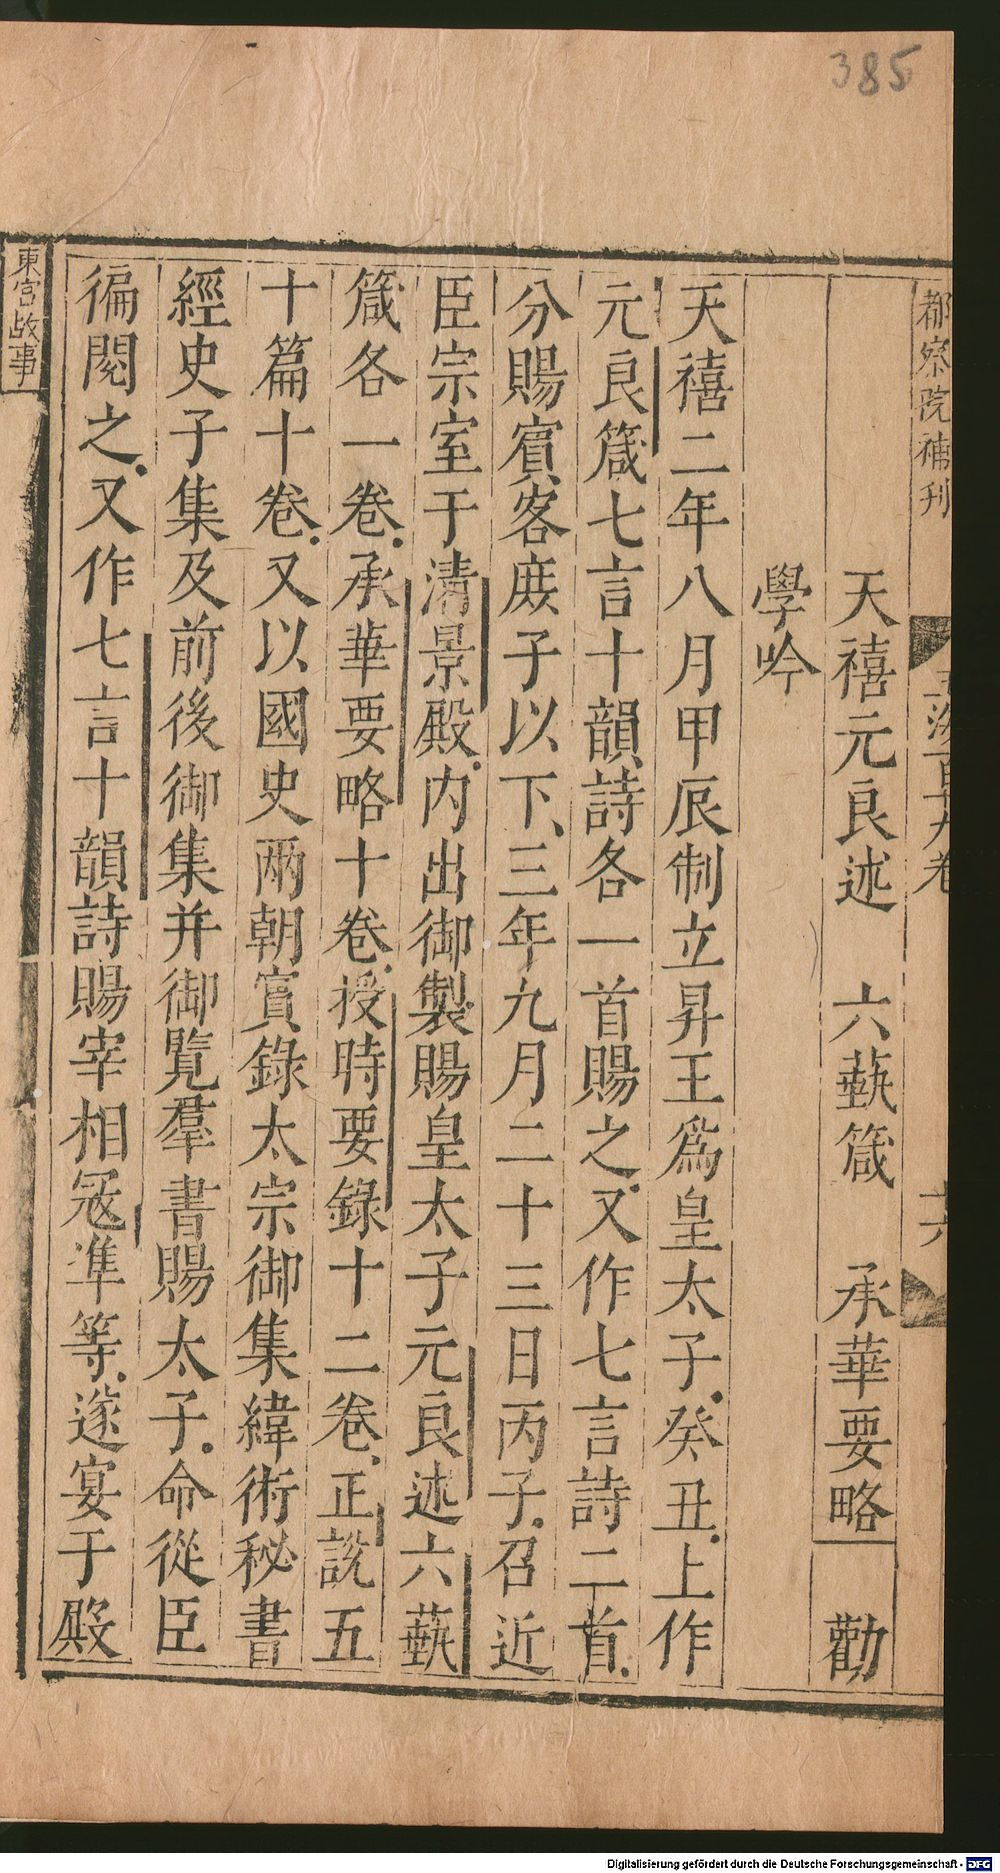 385
都察院補刊
玉海百廿九卷
十六
天禧元良述　六藝箴　承華要略　勸
學吟
天禧二年八月甲辰制立昇王爲皇太子癸丑上作
元良箴七言十韻詩各一首賜之又作七言詩二首
分賜賓客庶子以下三年九月二十三日丙子召近
臣宗室于清景殿内出御製賜皇太子元良述六藝
箴各一卷承華要略十卷授時要錄十二卷正説五
十篇十卷又以國史兩朝實錄太宗御集緯術秘書
經史子集及前後御集并御覽羣書賜太子命從臣
徧閱之又作七言十韻詩賜宰相宼凖等遂宴于殿
東宮故事
Digitalisierung gefördert durch die Deutsche Forschungsgemeinschaft - DFG